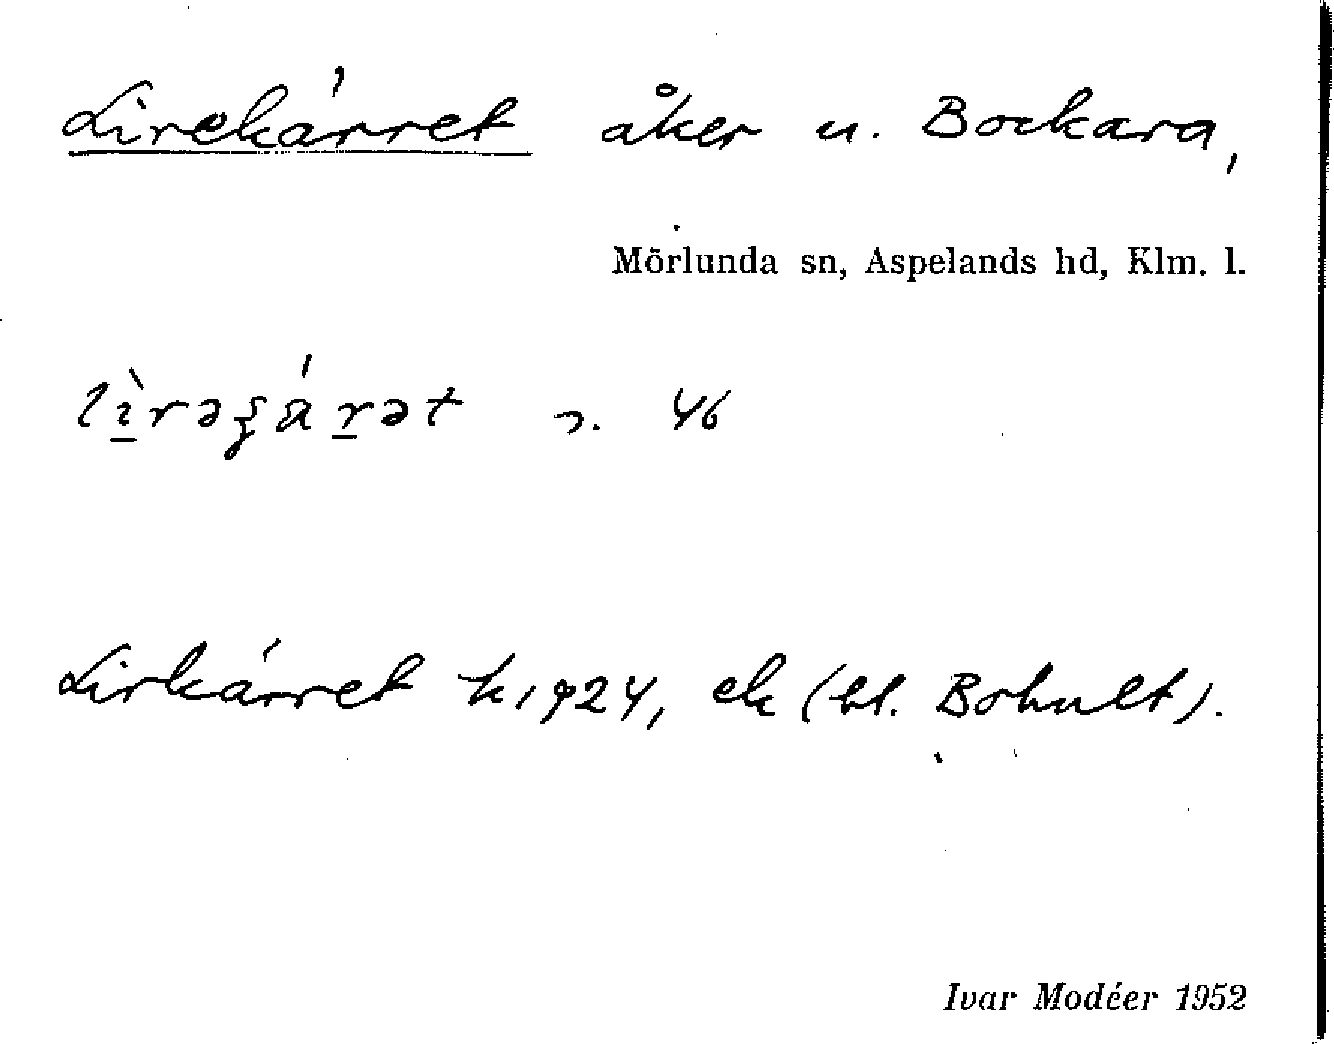 Lirekärret åker u. Bockara,
Mörlunda sn, Aspelands hd, Klm. l.
lìrəʂáɍət n. 46
Lirkärret k 1924, ek (bl. Bohult).
Ivar Modéer 1952